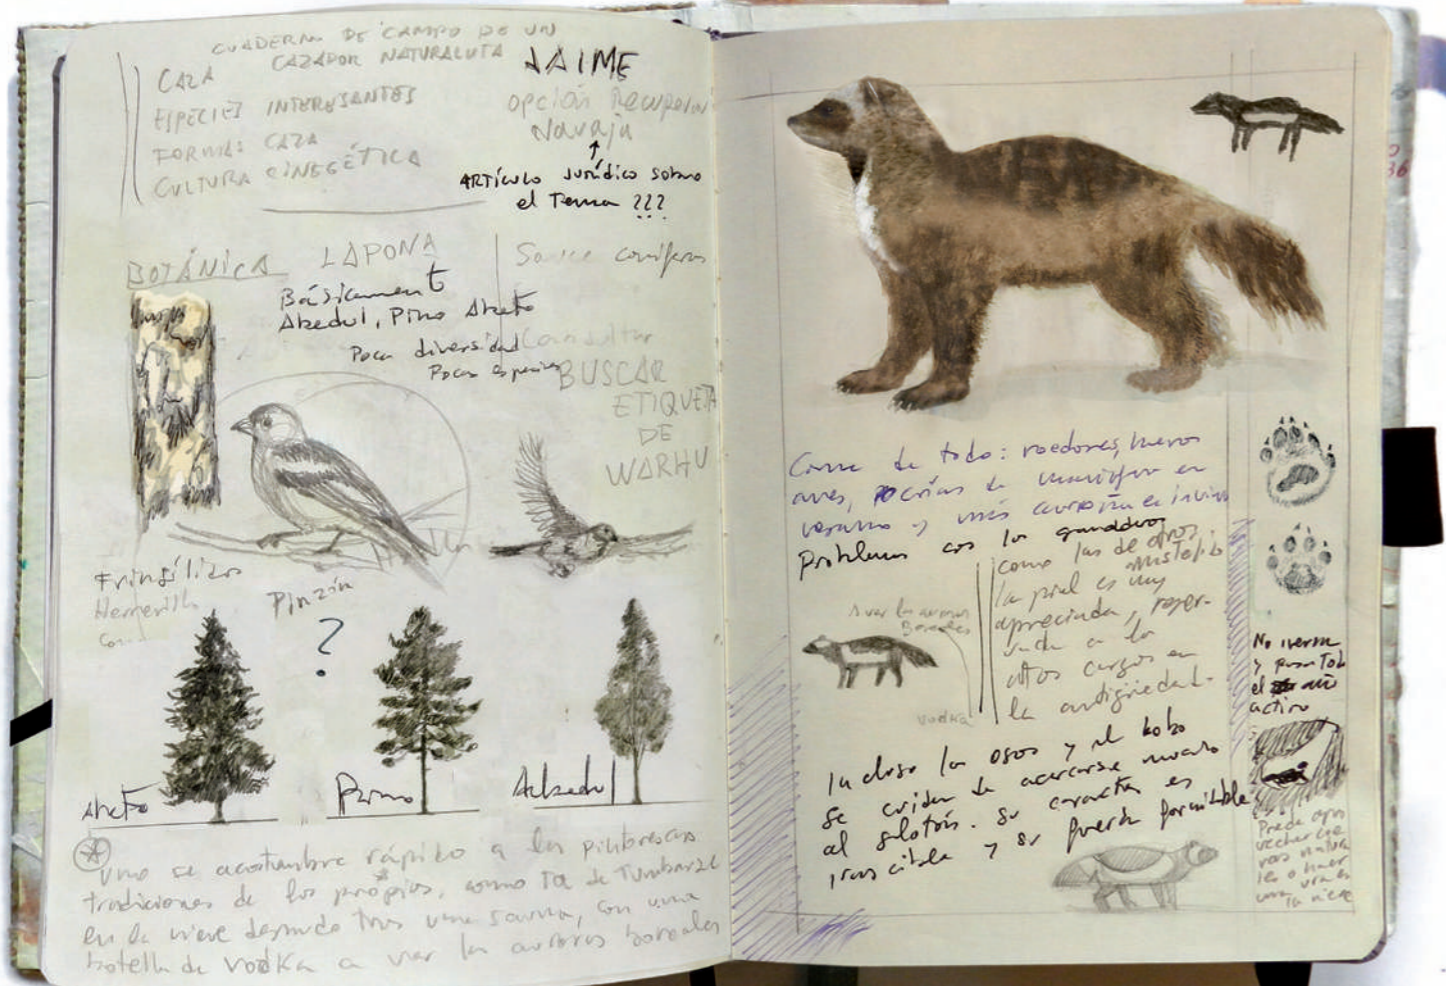 CUADERNO DE CAMPO DE UN
CAZADOR NATURALISTA
CAZA
ESPECIES INTERESANTES
FORMAS CAZA
CULTURA CINEGÉTICA
JAIME
opción Recuperar
Navaja
ARTículo Jurídico sobre
el Tema ???
BOTÁNICA
LAPONA
Básicament
Abedul, Pino Abeto
Poca diversidad
Pocas especies
Sauce coníferas
Consultar
BUSCAR
ETIQUETA
DE
WARHU
Fringílidos
Pinzón
?
Abeto
Pino
Abedul
Uno se acostumbra rápido a las pintorescas
tradiciones de los propios, como la de Tumbarse
en la nieve desnudo tras una sauna, con una
botella de vodka a ver las auroras boreales
Come de todo: roedores, huevos
aves, crías de en
verano y más carroña en invier
Problemas con los ganaderos
como las de otros
mustélidos
la piel es muy
apreciada, reser-
vada a los
altos cargos en
la antigüedad.
A ver las auroras
Boreales
vodka
Incluso los osos y el lobo
se cuidan de acercarse mucho
al glotón. Su carácter es
irascible y su fuerza formidable
No iverna
y pasa todo
el año
activo
Puede apro
vechar cue
vas natura
les o hacer
una ura en
la nieve